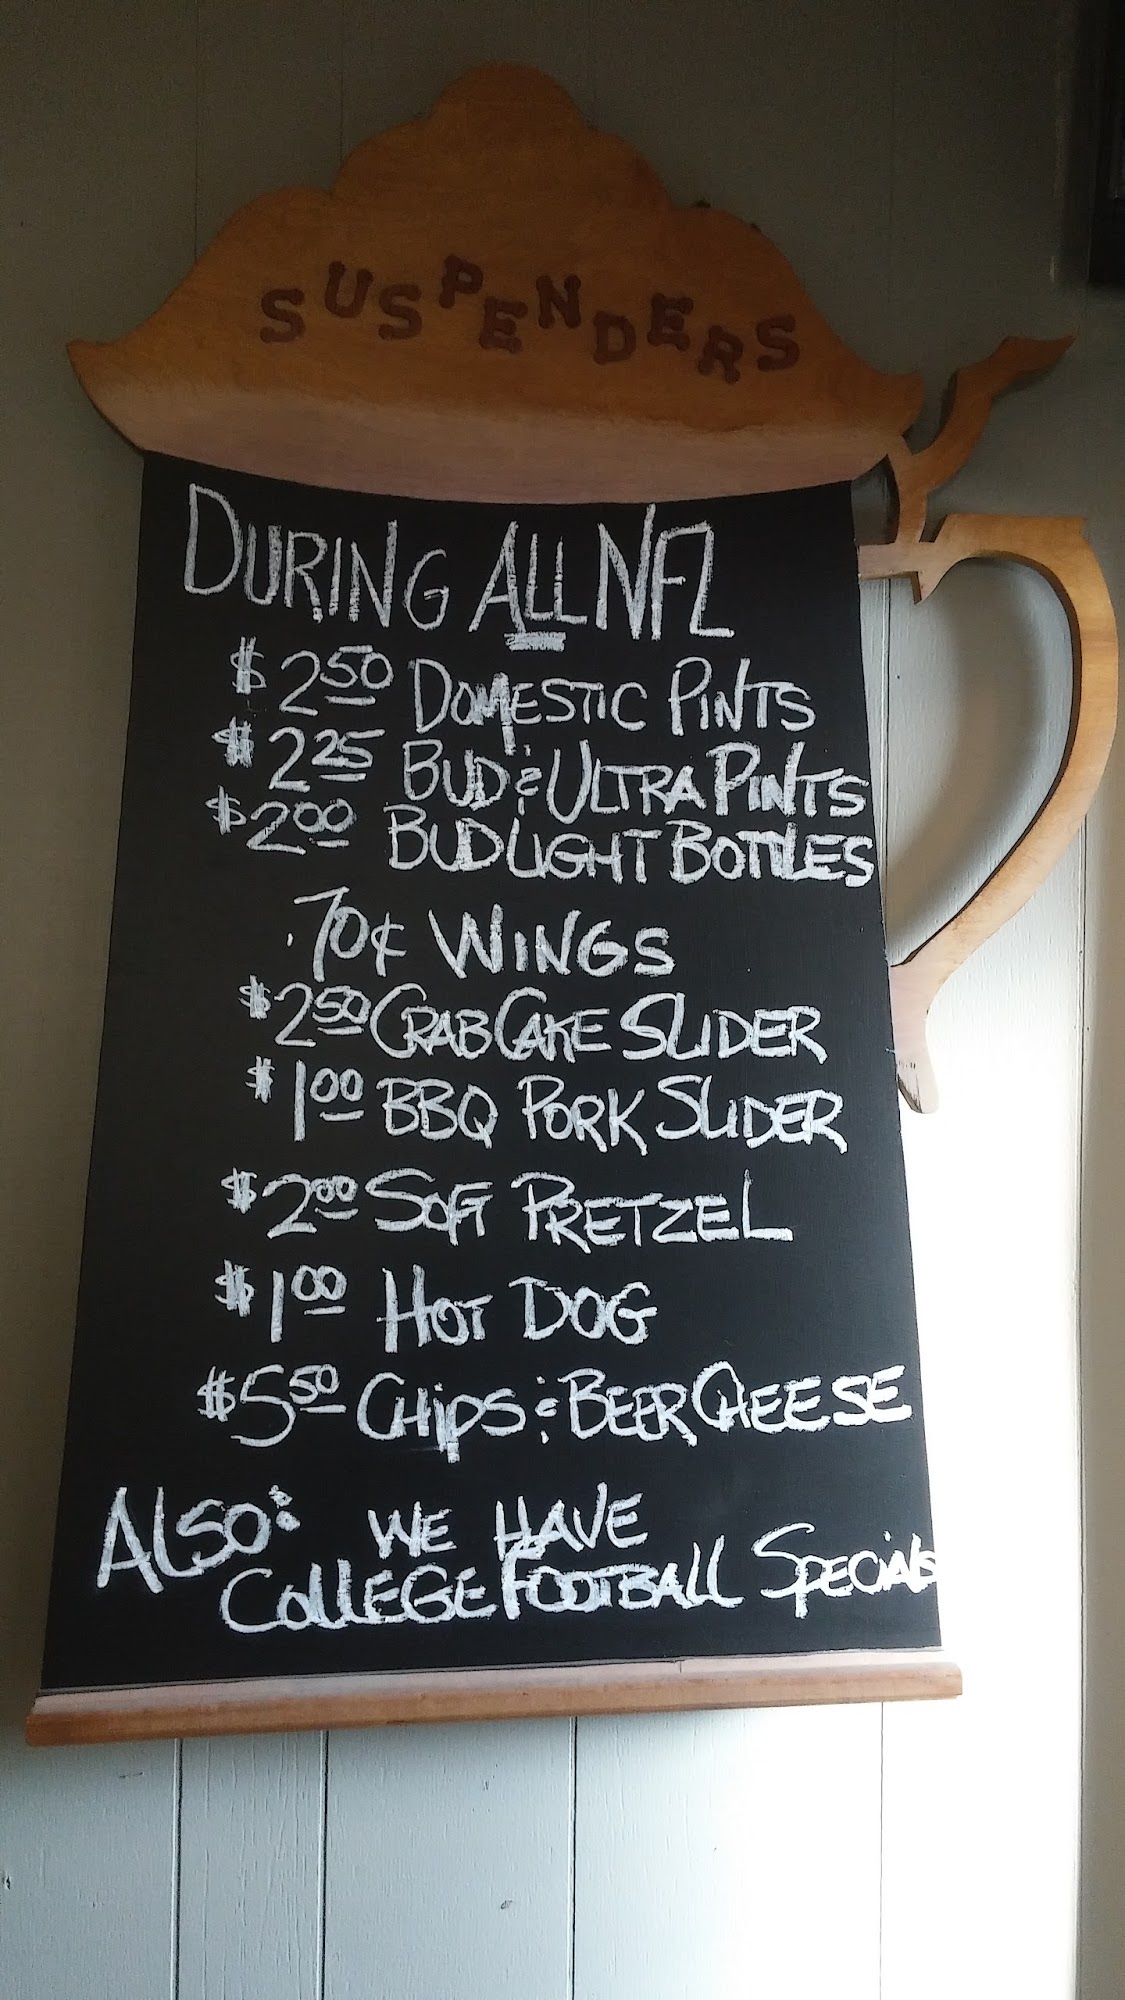 SUSPENDERS
DURING ALL NFL
$2.50 DOMESTIC PINTS
$2.25 BUD & ULTRA PINTS
$2.00 BUD LIGHT BOTTLES
.70¢ WINGS
$2.50 CRAB CAKE SLIDER
$1.00 BBQ PORK SLIDER
$2.00 SOFT PRETZEL
$1.00 HOT DOG
$5.50 CHIPS & BEER CHEESE
ALSO: WE HAVE
COLLEGE FOOTBALL SPECIALS